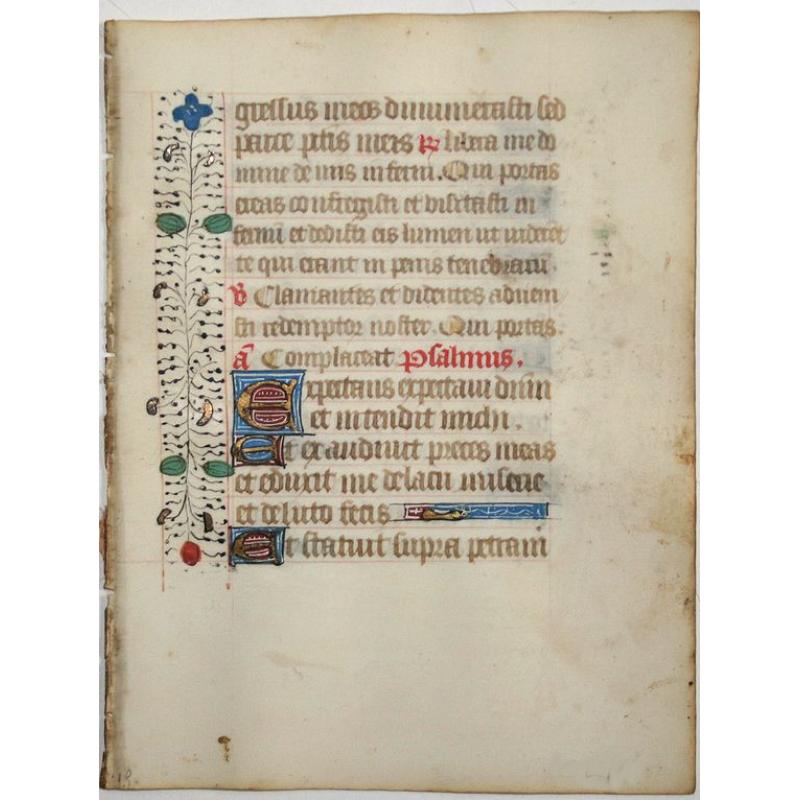 gressus meos dinumerasti sed
parce pctis meis R libera me do
mine de viis inferni. Qui portas
ereas confregisti et visitasti in
fernū et dedisti eis lumen ut viderēt
te qui erant in penis tenebrarū.
V Clamantes et dicentes advem
sti redemptor noster. Qui portas.
ā Complaceat Psalmus.
Expectans expectavi dnm
et intendit michi.
Et exaudivit preces meas
et eduxit me de lacu miserie
et de luto fecis
Et statuit supra petram